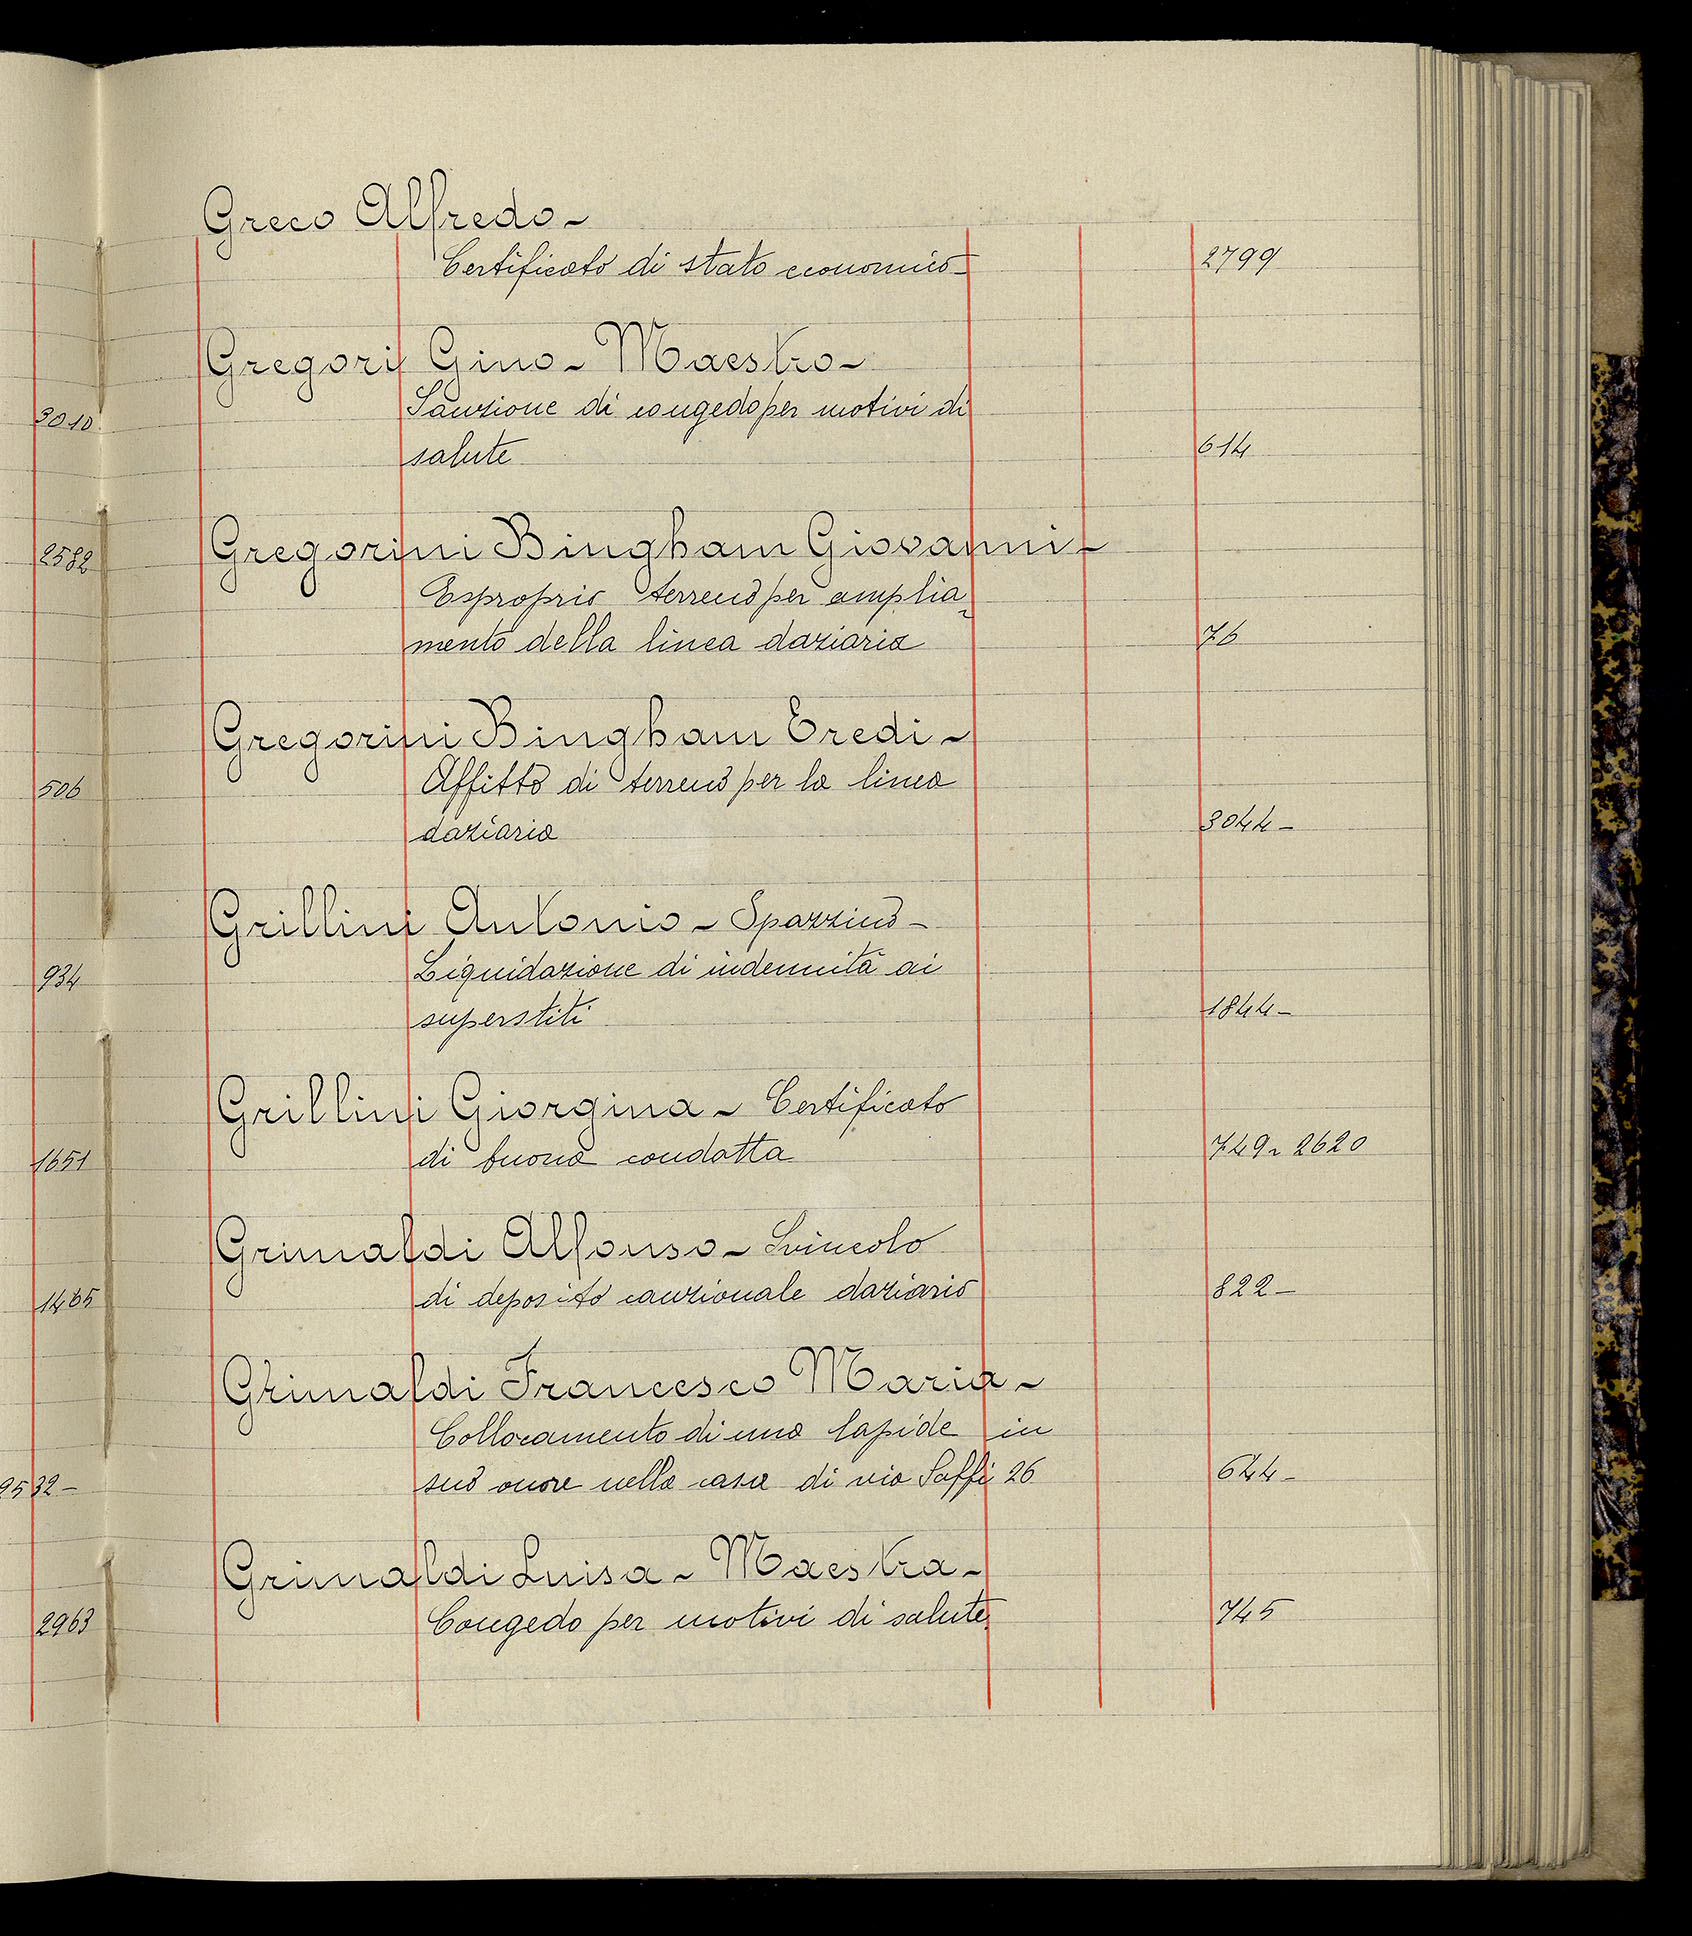 Greco Alfredo-
Certificato di stato economico- 2799
Gregori Gino- Maestro-
Sanzione di congedo per motivi di
salute 614
Gregorini Bingham Giovanni-
Esproprio terreno per amplia-
mento della linea daziaria 76
Gregorini Bingham Eredi-
Affitto di terreno per la linea
daziaria 3044-
Grillini Antonio- Spazzino-
Liquidazione di indennità ai
superstiti 1844-
Grillini Giorgina- Certificato
di buona condotta 749- 2620
Grimaldi Alfonso- Svincolo
di deposito cauzionale daziario 822-
Grimaldi Francesco Maria-
Collocamento di una lapide in
suo onore nella casa di via Saffi 26 644-
Grimaldi Luisa- Maestra-
Congedo per motivi di salute. 745
3010
2582
506
934
1651
1465
2532-
2963